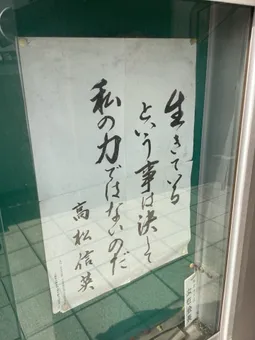 生きている
という事は決して
私の力ではないのだ
高松信英